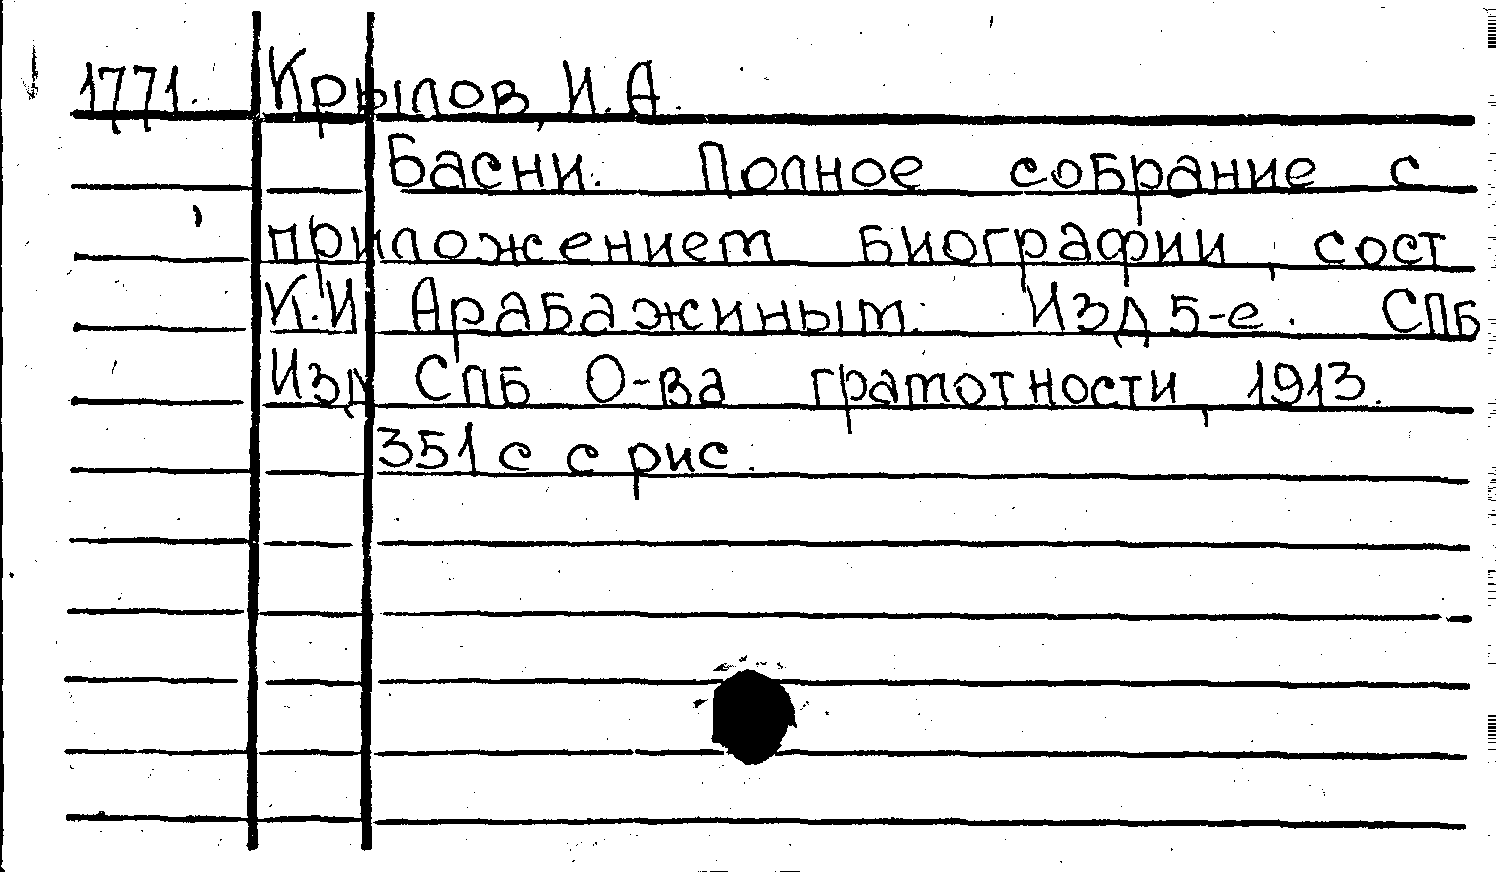 1771. Крылов, И.А.
Басни. Полное собрание с
приложением биографии, сост
К.И Арабажиным. Изд 5-е. СПБ
Изд СПБ О-ва грамотности, 1913.
351 с с рис.